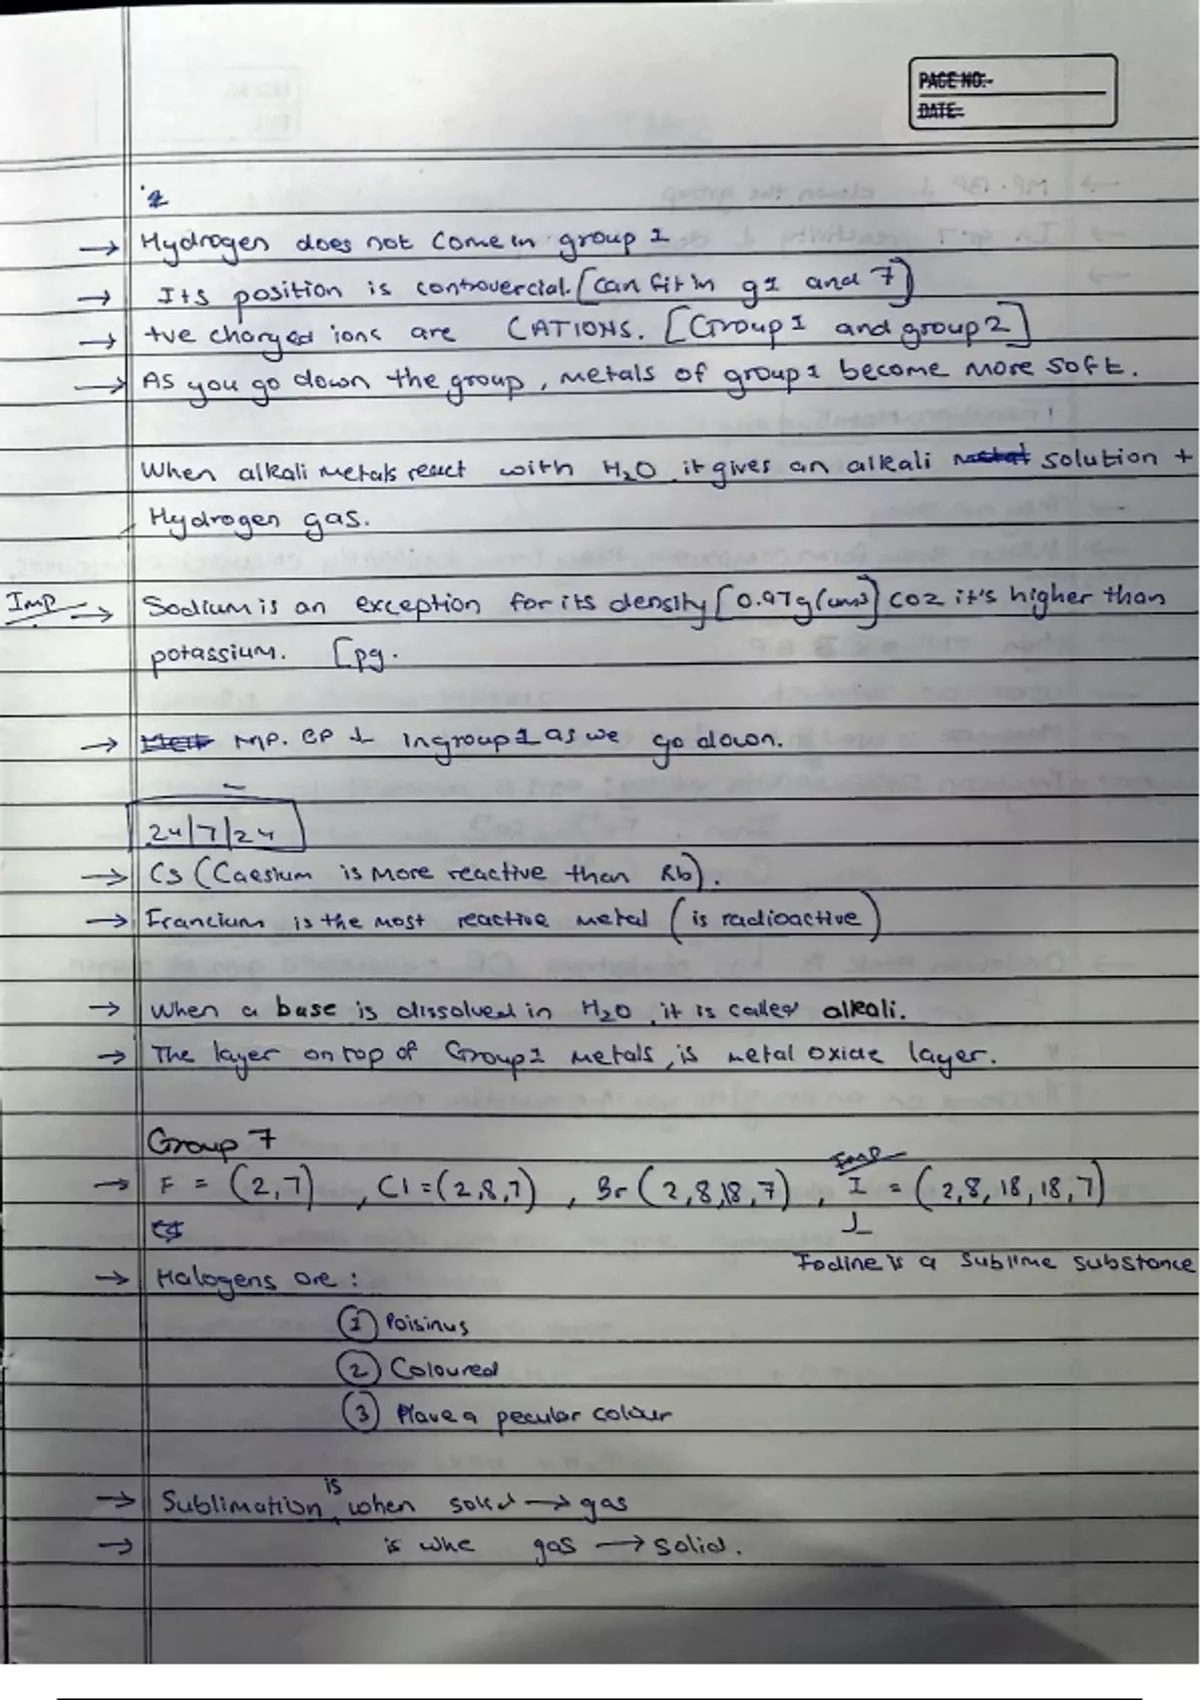 PAGE NO:-
DATE:
→ Hydrogen does not come in group 1
→ Its position is controvercial. [can fit in g1 and 7]
→ +ve charged ions are CATIONS. [Group 1 and group 2]
→ As you go down the group, metals of group 1 become more soft.
When alkali metals react with H₂O, it gives an alkali metal solution +
Hydrogen gas.
Imp → Sodium is an exception for its density [0.97g/cm3] coz it's higher than
potassium. [pg.
→ MP. BP ↓ in group 1 as we go down.
24/7/24
→ Cs (Caesium is more reactive than Rb).
→ Francium is the most reactive metal (is radioactive)
→ When a base is dissolved in H₂O, it is called alkali.
→ The layer on top of Group 1 metals, is metal oxide layer.
Group 7
Imp
→ F = (2,7), Cl = (2,8,7), Br (2,8,18,7), I = (2,8,18,18,7)
↓
Iodine is a sublime substance
→ Halogens are:
① Poisinus
② Coloured
③ Have a peculor colour
→ Sublimation is when solid → gas
→ is whe gas → solid.